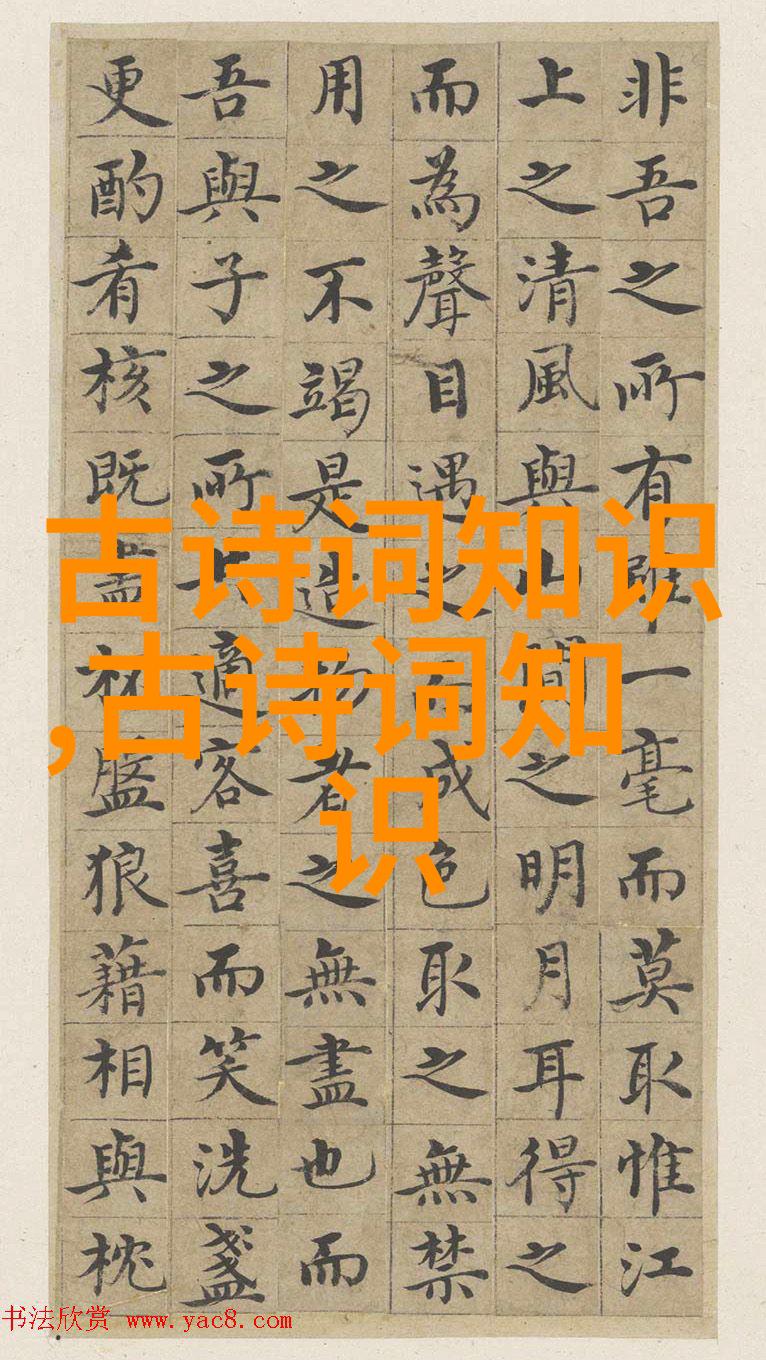 非吾之所有雖一毫而莫取惟江
上之清風與山間之明月耳得之
而為聲目遇之而成色取之無禁
用之不竭是造物者之無盡也而
吾與子之所共適客喜而笑洗盞
更酌肴核既盡杯盤狼藉相與枕
古诗词知识
,古诗词知
识
书法欣赏 www.yac8.com